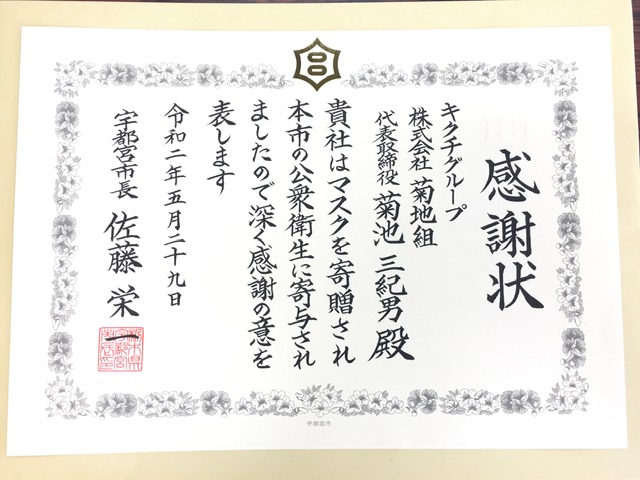 感謝状
キクチグループ
株式会社 菊地組
代表取締役 菊池 三紀男 殿
貴社はマスクを寄贈され
本市の公衆衛生に寄与され
ましたので深く感謝の意を
表します
令和二年五月二十九日
宇都宮市長 佐藤 栄一
宇都宮市